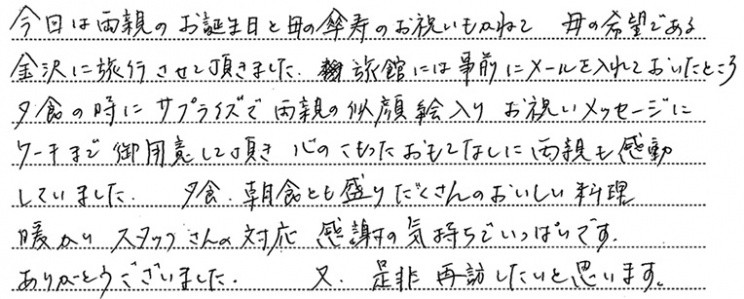 今回は両親のお誕生日と母の傘寿のお祝いもかねて 母の希望である
金沢に旅行させて頂きました. 旅館には事前にメールを入れておいたところ
夕食の時にサプライズで両親の似顔絵入り お祝いメッセージに
ケーキまで御用意して頂き 心のこもったおもてなしに両親も感動
していました. 夕食.朝食とも盛りだくさんのおいしい料理
暖かい スタッフさんの対応 感謝の気持ちでいっぱいです.
ありがとうございました. 又.是非 再訪したいと思います。